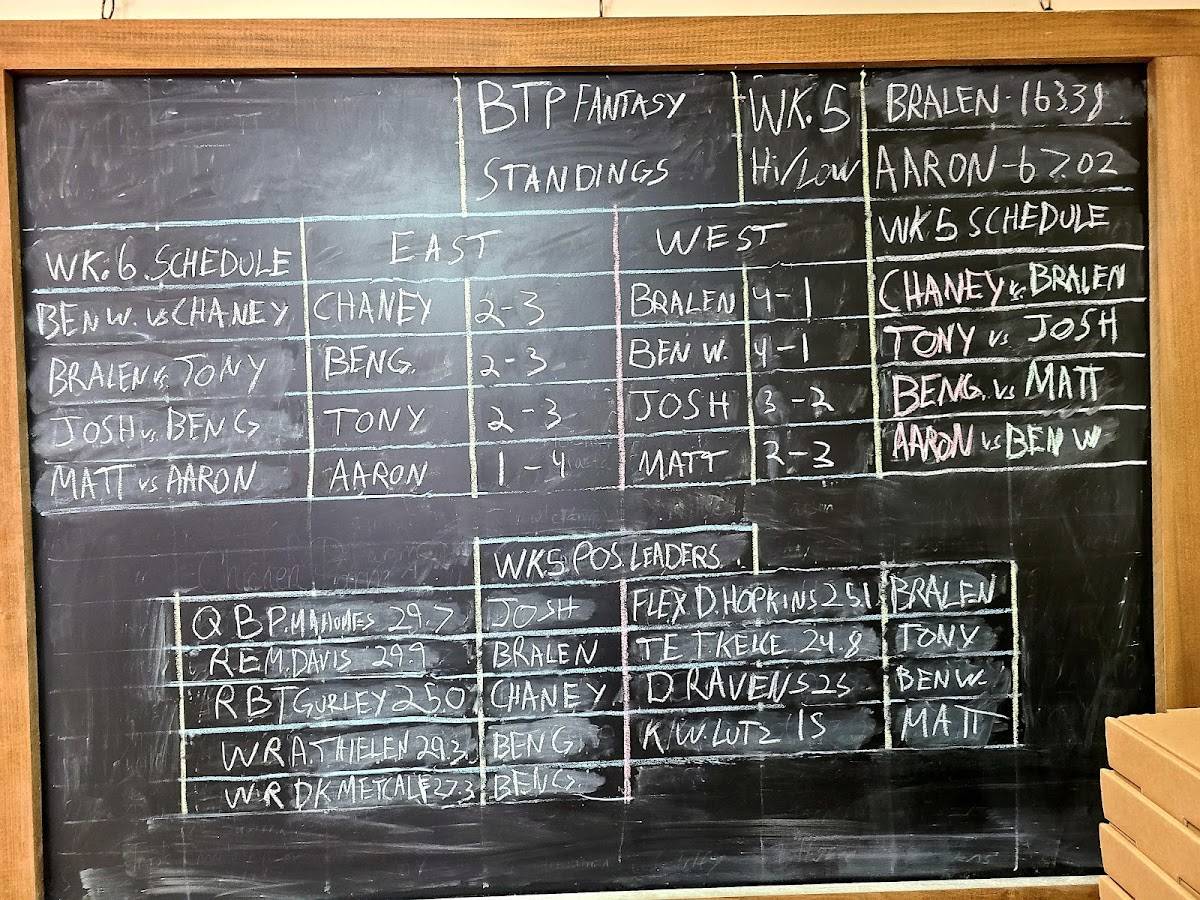 BTP FANTASY
STANDINGS
WK. 5
Hi/Low
BRALEN - 163.38
AARON - 67.02
WK. 6 SCHEDULE
BEN W. vs CHANEY
BRALEN vs. TONY
JOSH vs. BEN G
MATT vs AARON
EAST
CHANEY 2-3
BEN G. 2-3
TONY 2-3
AARON 1-4
WEST
BRALEN 4-1
BEN W. 4-1
JOSH 3-2
MATT 2-3
WK 5 SCHEDULE
CHANEY vs. BRALEN
TONY vs JOSH
BEN G. vs MATT
AARON vs BEN W
WK5 POS. LEADERS
QB P. MAHOMES 29.7 JOSH
RB M. DAVIS 29.9 BRALEN
RB T GURLEY 25.0 CHANEY
WR A. THIELEN 29.3 BEN G
WR DK METCALF 27.3 BEN G.
FLEX D. HOPKINS 25.1 BRALEN
TE T KELCE 24.8 TONY
D RAVENS 25 BEN W.
K W. LUTZ 15 MATT